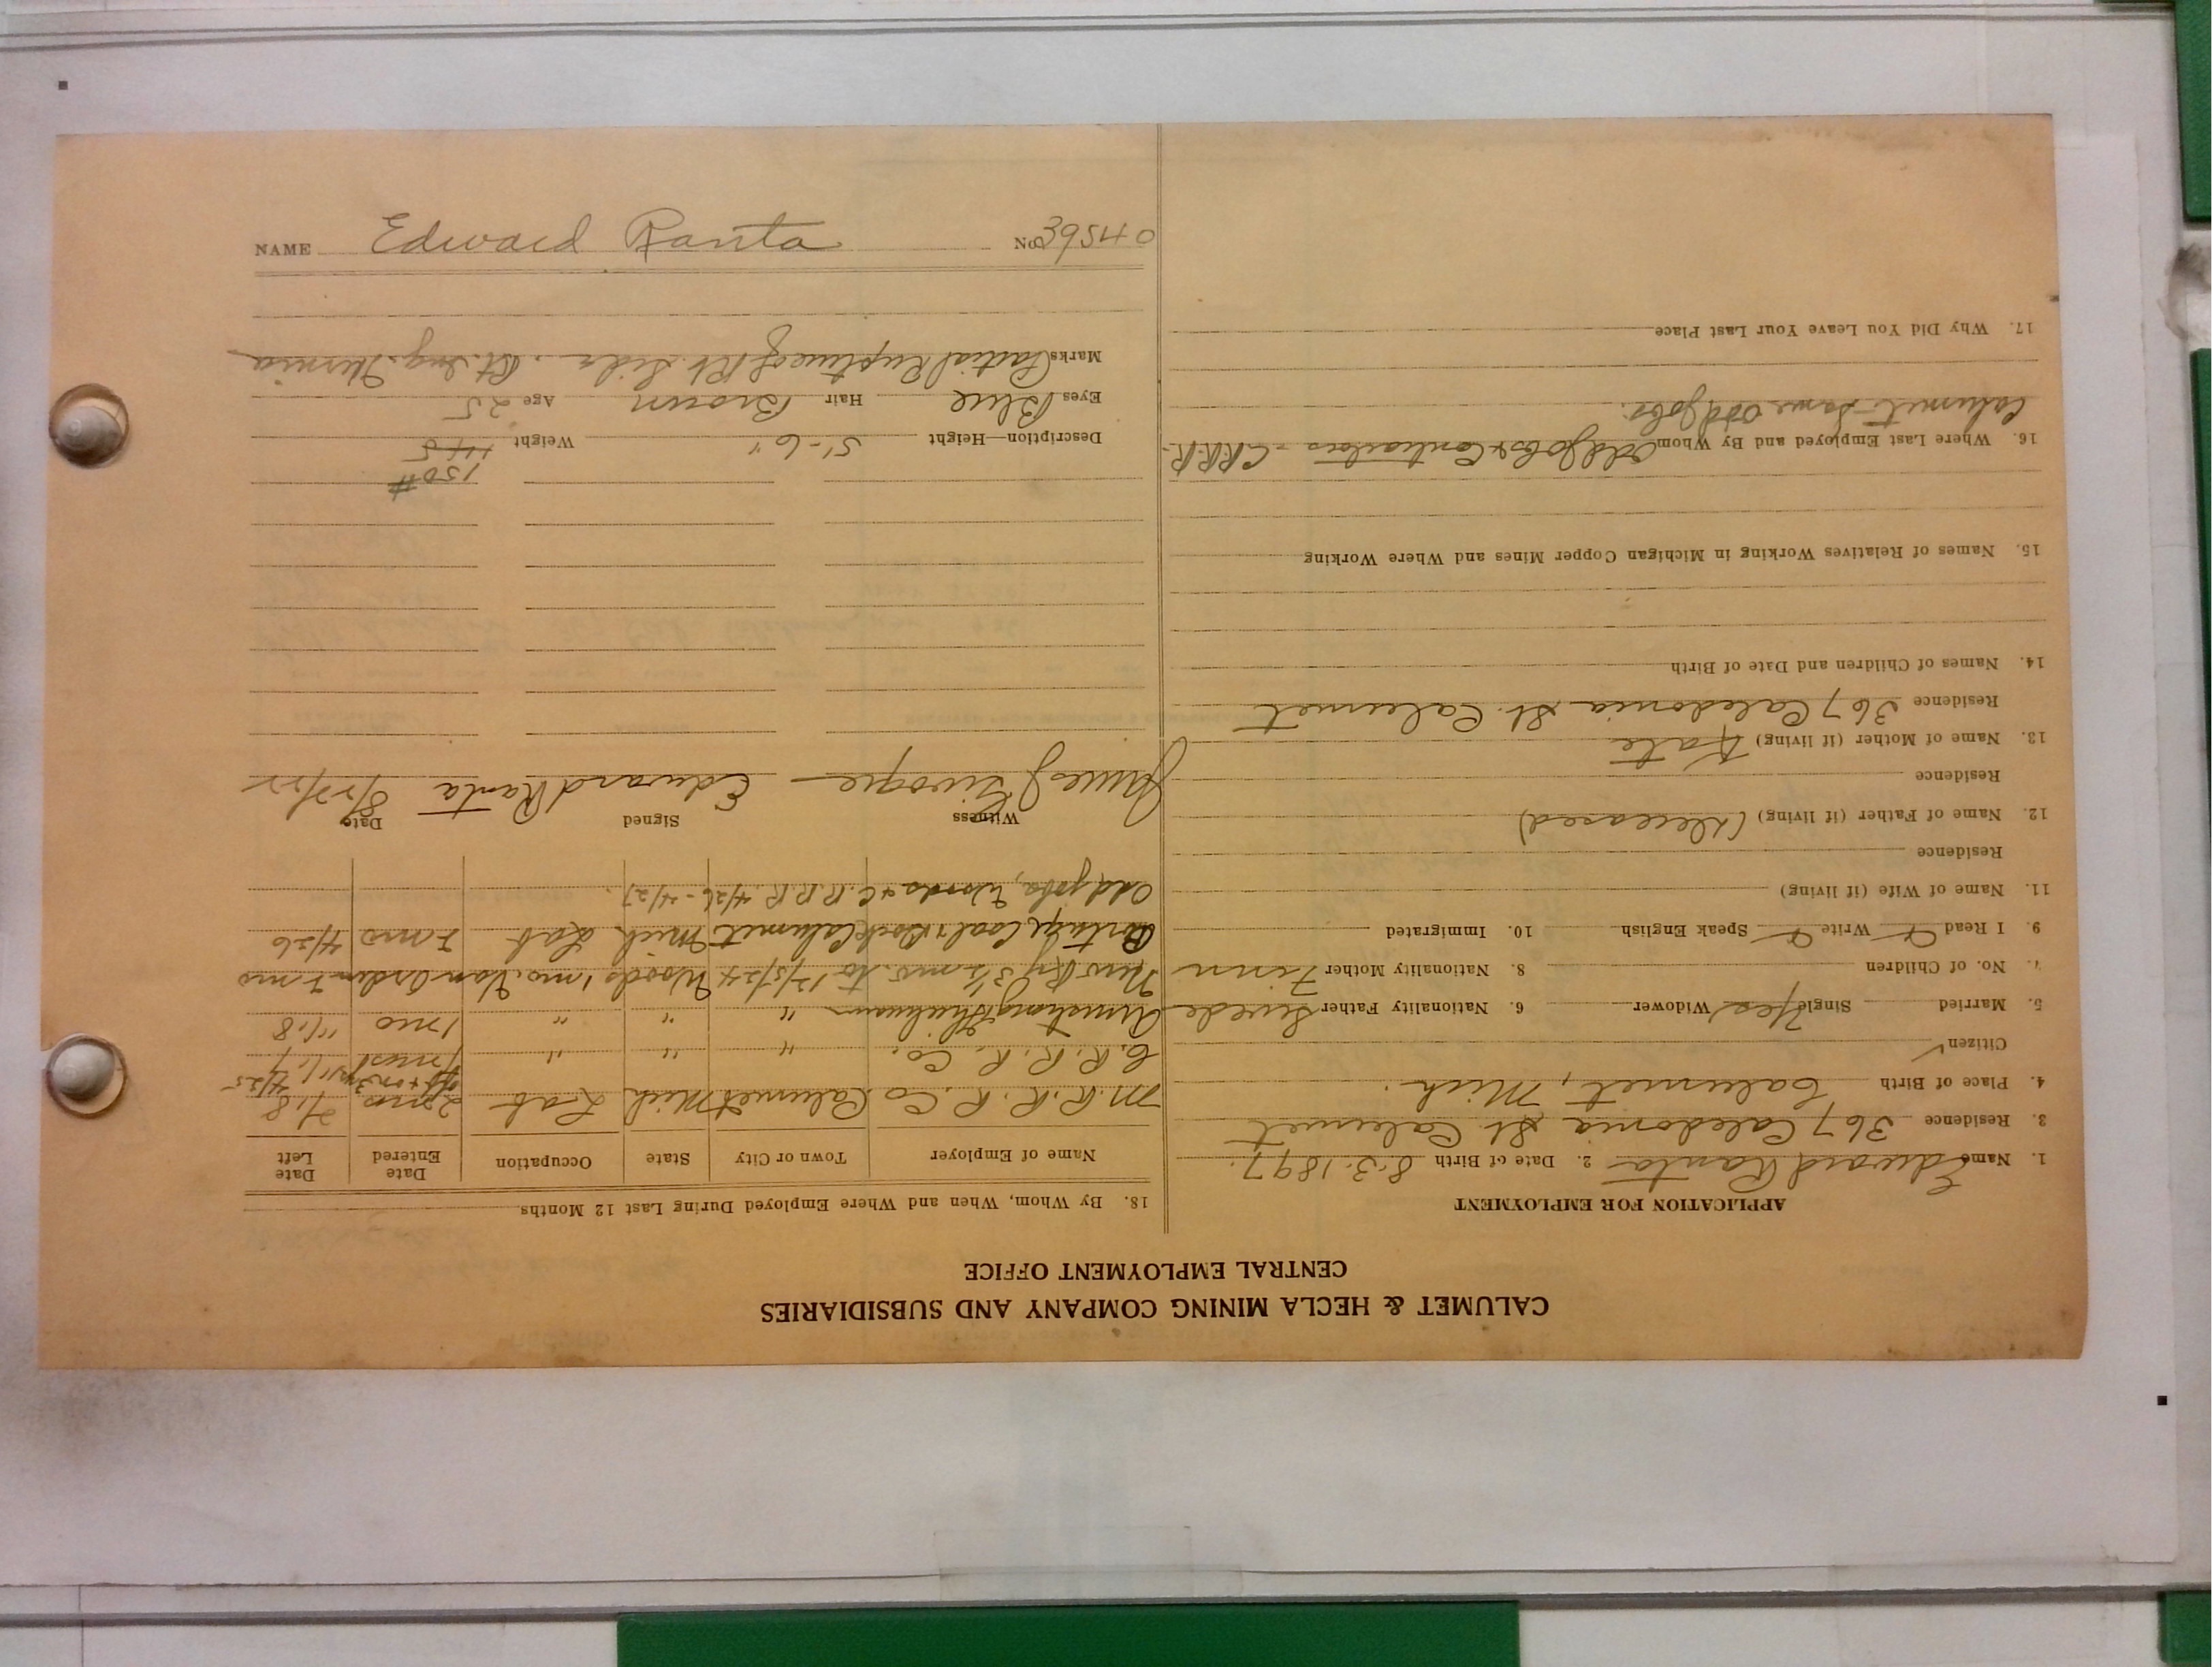 CALUMET & HECLA MINING COMPANY AND SUBSIDIARIES
CENTRAL EMPLOYMENT OFFICE
APPLICATION FOR EMPLOYMENT
1. Name Edward Ranta 2. Date of Birth 8.3.1897.
3. Residence 367 Caledonia St. Calumet
4. Place of Birth Calumet, Mich.
Citizen ✓
5. Married Single Yes Widower 6. Nationality Father Swede
7. No. of Children 8. Nationality Mother Finn
9. I Read Write Speak English 10. Immigrated
11. Name of Wife (if living)
Residence
12. Name of Father (if living) (Deceased)
Residence
13. Name of Mother (if living) Kate
Residence 367 Caledonia St. Calumet
14. Names of Children and Date of Birth
15. Names of Relatives Working in Michigan Copper Mines and Where Working
16. Where Last Employed and By Whom Odd Jobs & Contractors - C.R.R.R.
Calumet Some odd jobs.
17. Why Did You Leave Your Last Place
18. By Whom, When and Where Employed During Last 12 Months
Name of Employer Town or City State Occupation Date Entered Date Left
M.R.R.R. Co Calumet Mich Lab 2 mos 2/18
off & on 4/25
C.R.R.R. Co. " " "
Armstrong " " " 1 mo 11/18
3 1/2 mos. to 12/5/24 Woods 1 mo. 7 mos
Portage Coal & Dock Calumet Mich Lab 7 mos 4/26
Odd jobs, Woods & C.R.R.R. 4/26 - 4/27.
Witness Signed Date
James J Edward Ranta
150#
Description—Height 5'-6" Weight 145
Eyes Blue Hair Brown Age 25
Marks Partial Rupture of Rt. Side. Rt. Ing. Hernia
NAME Edward Ranta No. 39540